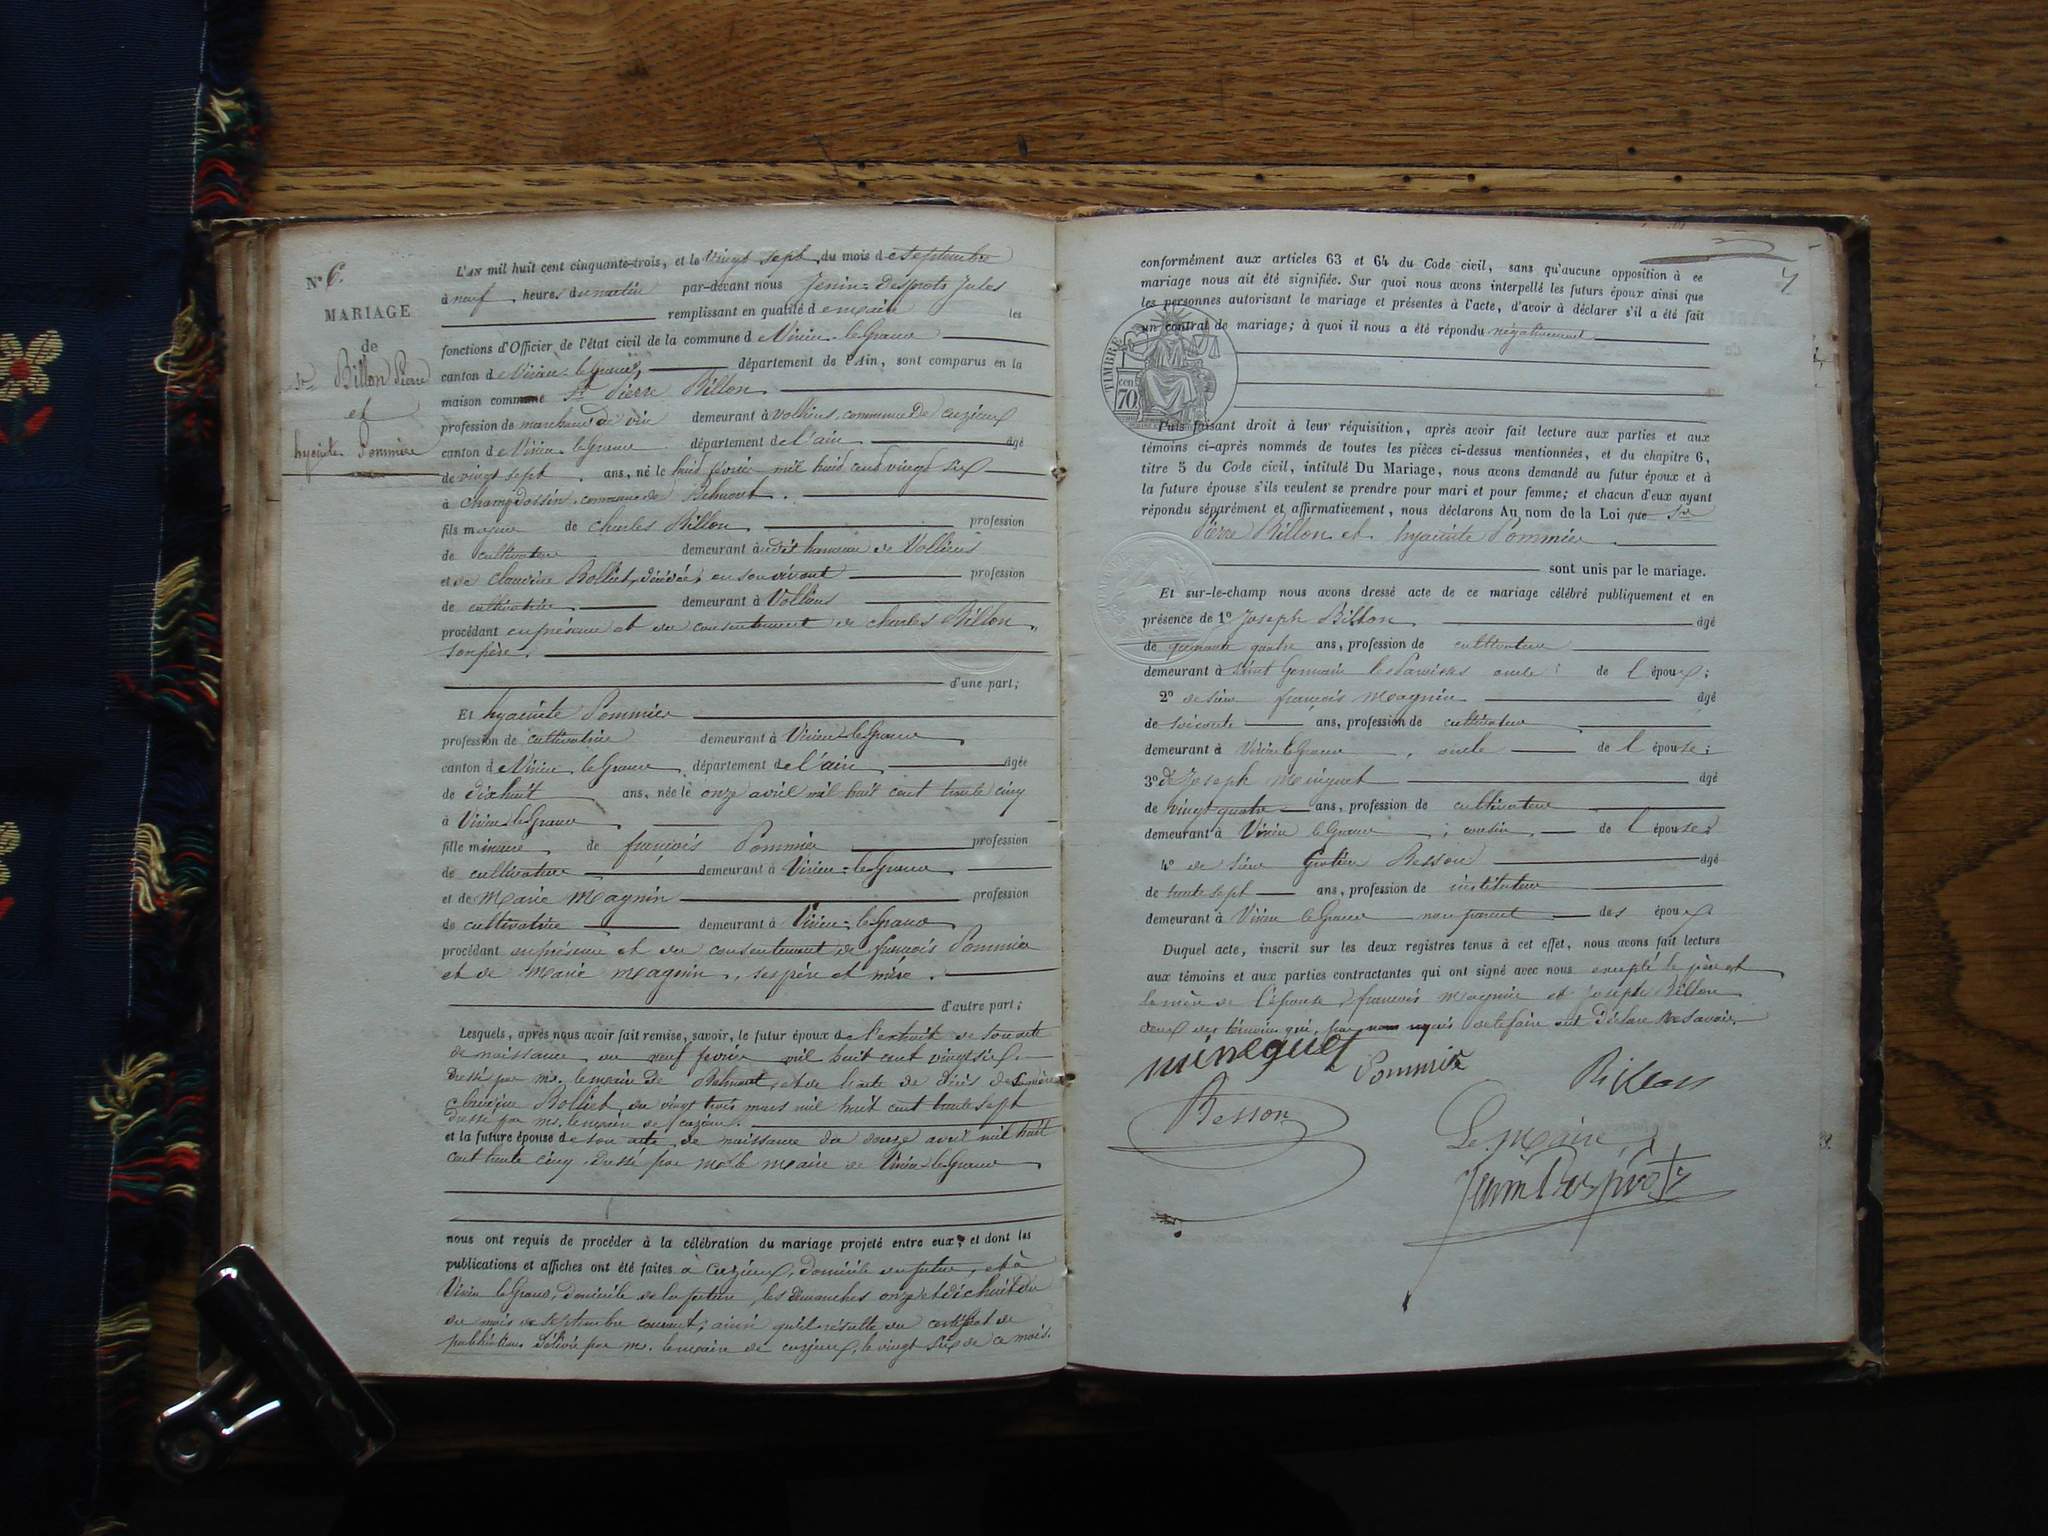 N° 6.
MARIAGE
de
Sr Billon Pierre
et
hyacinte Pommier
L'AN mil huit cent cinquante-trois, et le vingt sept du mois de septembre
à neuf heures du matin par-devant nous Jenin-Desprots Jules
remplissant en qualité de maire les
fonctions d'Officier de l'état civil de la commune de Virieu-le-Grand
canton de Virieu-le-Grand, département de l'Ain, sont comparus en la
maison commune Sr Pierre Billon
profession de marchand de vin demeurant à Vollien, commune De Cuzieux
canton de Virieu-le-Grand département de l'ain âgé
de vingt sept ans, né le huit février mil huit cent vingt six
à Champdossin, commune de Belmont.
fils majeur de Charles Billon profession
de cultivateur demeurant à dit hameau de Vollien
et de Claudine Bolliet, décédée, en son vivant profession
de cultivatrice demeurant à Vollien
procédant en présence et du consentement de Charles Billon,
son père.
d'une part;
Et hyacinte Pommier
profession de cultivatrice demeurant à Virieu-le-Grand
canton de Virieu-le-Grand département de l'ain âgée
de dix huit ans, née le onze avril mil huit cent trente cinq
à Virieu-le-Grand
fille mineure de françois Pommier profession
de cultivateur demeurant à Virieu-le-Grand
et de Marie Magnin profession
de cultivatrice demeurant à Virieu-le-Grand
procédant en présence et du consentement de françois Pommier
et de Marie Magnin, ses père et mère.
d'autre part;
Lesquels, après nous avoir fait remise, savoir, le futur époux de l'extrait de son acte
de naissance du neuf février mil huit cent vingt six
dressé par mr. le maire de Belmont, et de l'acte de décès de sa mère
Claudine Bolliet, du vingt trois mars mil huit cent trente sept
dressé par mr. le maire de Cuzieux.
et la future épouse de son acte de naissance du douze avril mil huit
cent trente cinq dressé par Mr le maire de Virieu-le-Grand
nous ont requis de procéder à la célébration du mariage projeté entre eux, et dont les
publications et affiches ont été faites à Cuzieux, domicile du futur, et à
Virieu le Grand, domicile de la future, les dimanches onze et dix huit du
du mois de septembre courant; ainsi qu'il résulte du certificat de
publication délivré par mr. le maire de Cuzieux, le vingt six de ce mois.
7
conformément aux articles 63 et 64 du Code civil, sans qu'aucune opposition à ce
mariage nous ait été signifiée. Sur quoi nous avons interpellé les futurs époux ainsi que
les personnes autorisant le mariage et présentes à l'acte, d'avoir à déclarer s'il a été fait
un contrat de mariage; à quoi il nous a été répondu négativement
TIMBRE
70 cen
Puis faisant droit à leur réquisition, après avoir fait lecture aux parties et aux
témoins ci-après nommés de toutes les pièces ci-dessus mentionnées, et du chapitre 6,
titre 5 du Code civil, intitulé Du Mariage, nous avons demandé au futur époux et à
la future épouse s'ils veulent se prendre pour mari et pour femme; et chacun d'eux ayant
répondu séparément et affirmativement, nous déclarons Au nom de la Loi que Sr
Pierre Billon et hyacinte Pommier
sont unis par le mariage.
Et sur-le-champ nous avons dressé acte de ce mariage célébré publiquement et en
présence de 1° Joseph Billon âgé
de quarante quatre ans, profession de cultivateur
demeurant à Saint Germain les Paroisses oncle de l époux;
2° de sieur françois Magnin âgé
de soixante ans, profession de cultivateur
demeurant à Virieu le Grand, oncle de l épouse;
3° de Joseph Minguet âgé
de vingt-quatre ans, profession de cultivateur
demeurant à Virieu le Grand, cousin de l épouse;
4° de sieur Besson âgé
de trente sept ans, profession de instituteur
demeurant à Virieu le Grand non parent des époux.
Duquel acte, inscrit sur les deux registres tenus à cet effet, nous avons fait lecture
aux témoins et aux parties contractantes qui ont signé avec nous excepté le père et
la mère de l'épouse, françois Magnin et Joseph Billon
deux des témoins qui, par nous requis de le faire ont déclaré ne savoir.
mineguet
Pommier
Billon
Besson
Le Maire,
Jenin Desprots